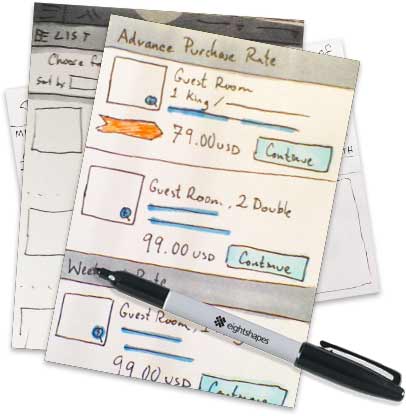 LIST
Choose
Sort by
Advance Purchase Rate
Guest Room
1 King /
79.00 USD
Continue
Guest Room, 2 Double
99.00 USD
Continue
Rate
Guest Room,
99.00 USD
Continue
eightshapes